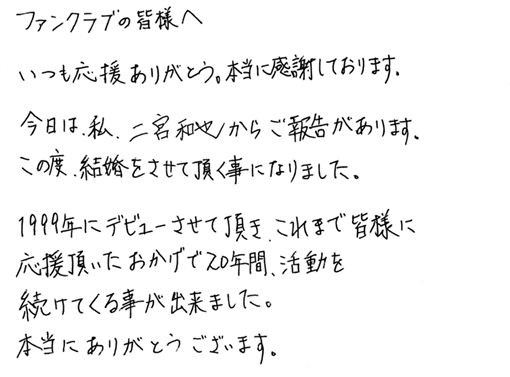 ファンクラブの皆様へ
いつも応援ありがとう。本当に感謝しております。
今日は、私、二宮和也からご報告があります。
この度、結婚をさせて頂く事になりました。
1999年にデビューさせて頂き、これまで皆様に
応援頂いたおかげで20年間、活動を
続けてくる事が出来ました。
本当にありがとうございます。